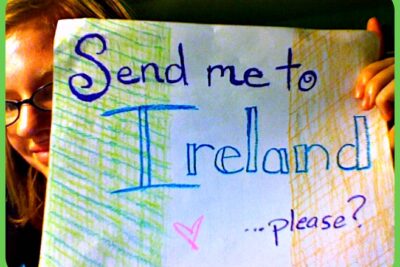 Send me to
Ireland
...please?